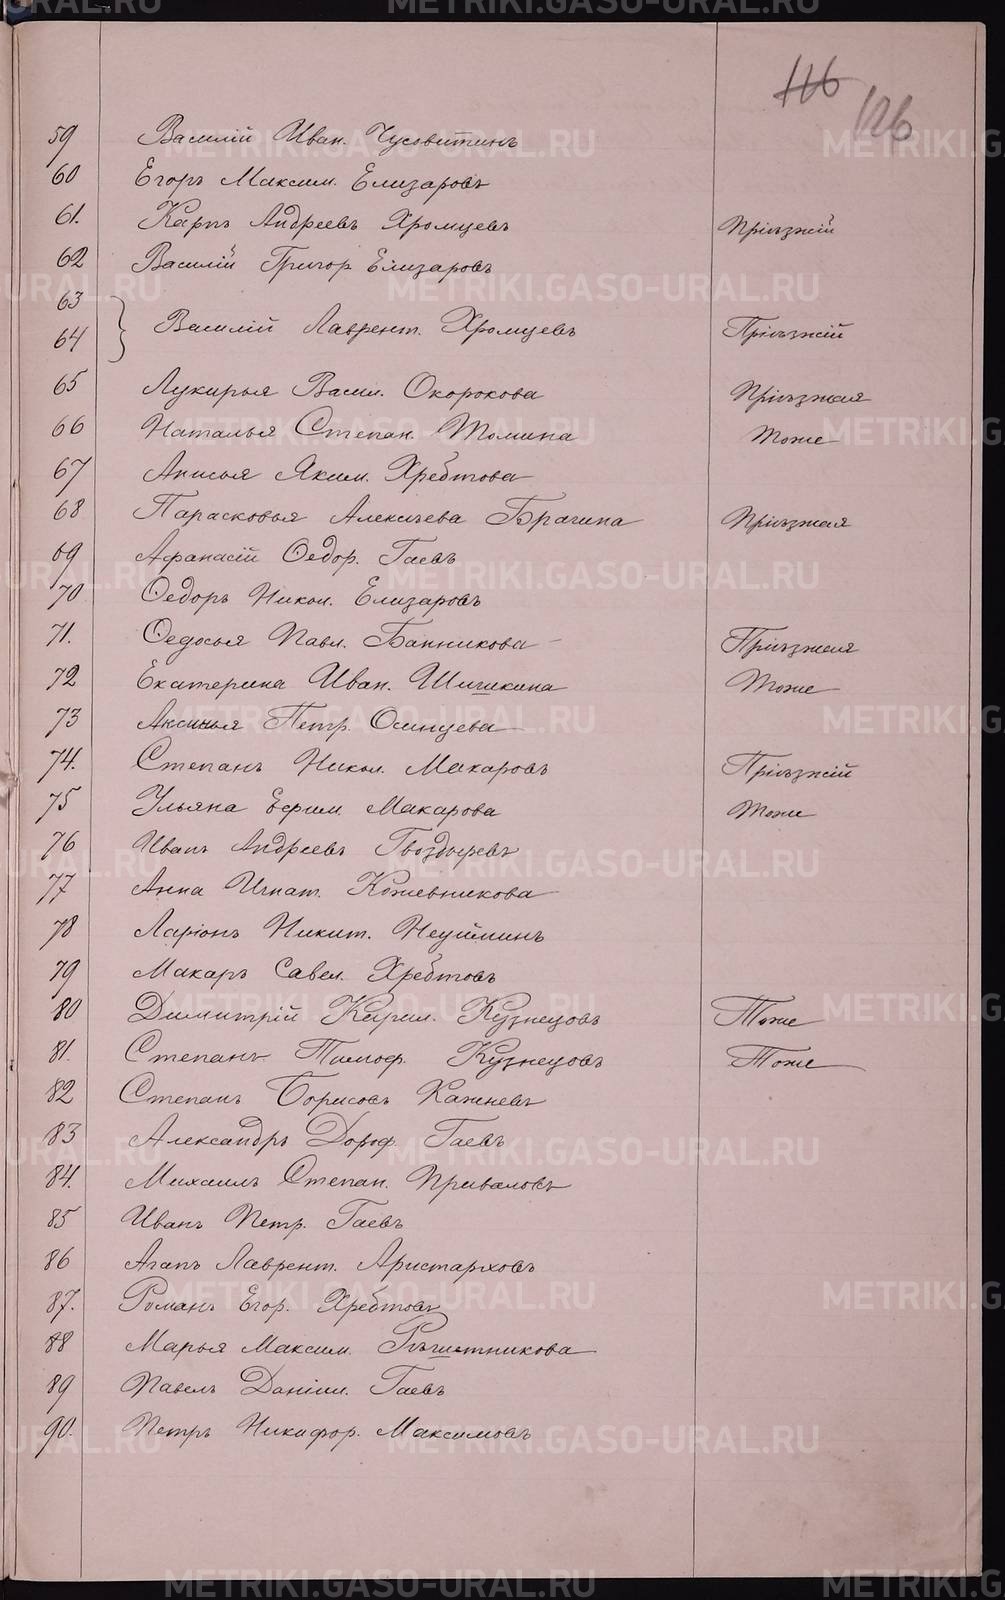 116
126
59 Василій Иван. Чусовитинъ
60 Егоръ Максим. Елизаровъ
61. Карпъ Андреевъ Хромцевъ Пріѣзжій
62 Василій Григор Елизаровъ
63
64 Василій Лаврент. Хромцевъ Пріѣзжій
65 Лукирья Васил. Окорокова Пріѣзжая
66 Наталья Степан. Томина Тоже
67 Анисья Яким. Хребтова
68 Парасковья Алексѣева Брагина Пріѣзжая
69 Афанасій Ѳедор. Гаевъ
70 Ѳедоръ Никол. Елизаровъ
71. Ѳедосья Павл. Банникова Пріѣзжая
72 Екатерина Иван. Шишкина Тоже
73 Аксинья Петр. Осинцева
74. Степанъ Никол. Макаровъ Пріѣзжій
75 Ульяна Ефим. Макарова Тоже
76 Иванъ Андреевъ Гвоздыревъ
77 Анна Игнат. Кожевникова
78 Ларіонъ Никит. Неуйминъ
79 Макаръ Савел. Хребтовъ
80 Димитрій Кирил. Кузнецовъ Тоже
81. Степанъ Тимоф. Кузнецовъ Тоже
82 Степанъ Борисовъ
83 Александръ Дороф. Гаевъ
84. Михаилъ Степан. Приваловъ
85 Иванъ Петр. Гаевъ
86 Агапъ Лаврент. Аристарховъ
87. Романъ Егор. Хребтовъ
88 Марья Максим. Рѣшетникова
89 Павелъ Даніил. Гаевъ
90. Петръ Никифор. Максимовъ
METRIKI.GASO-URAL.RU